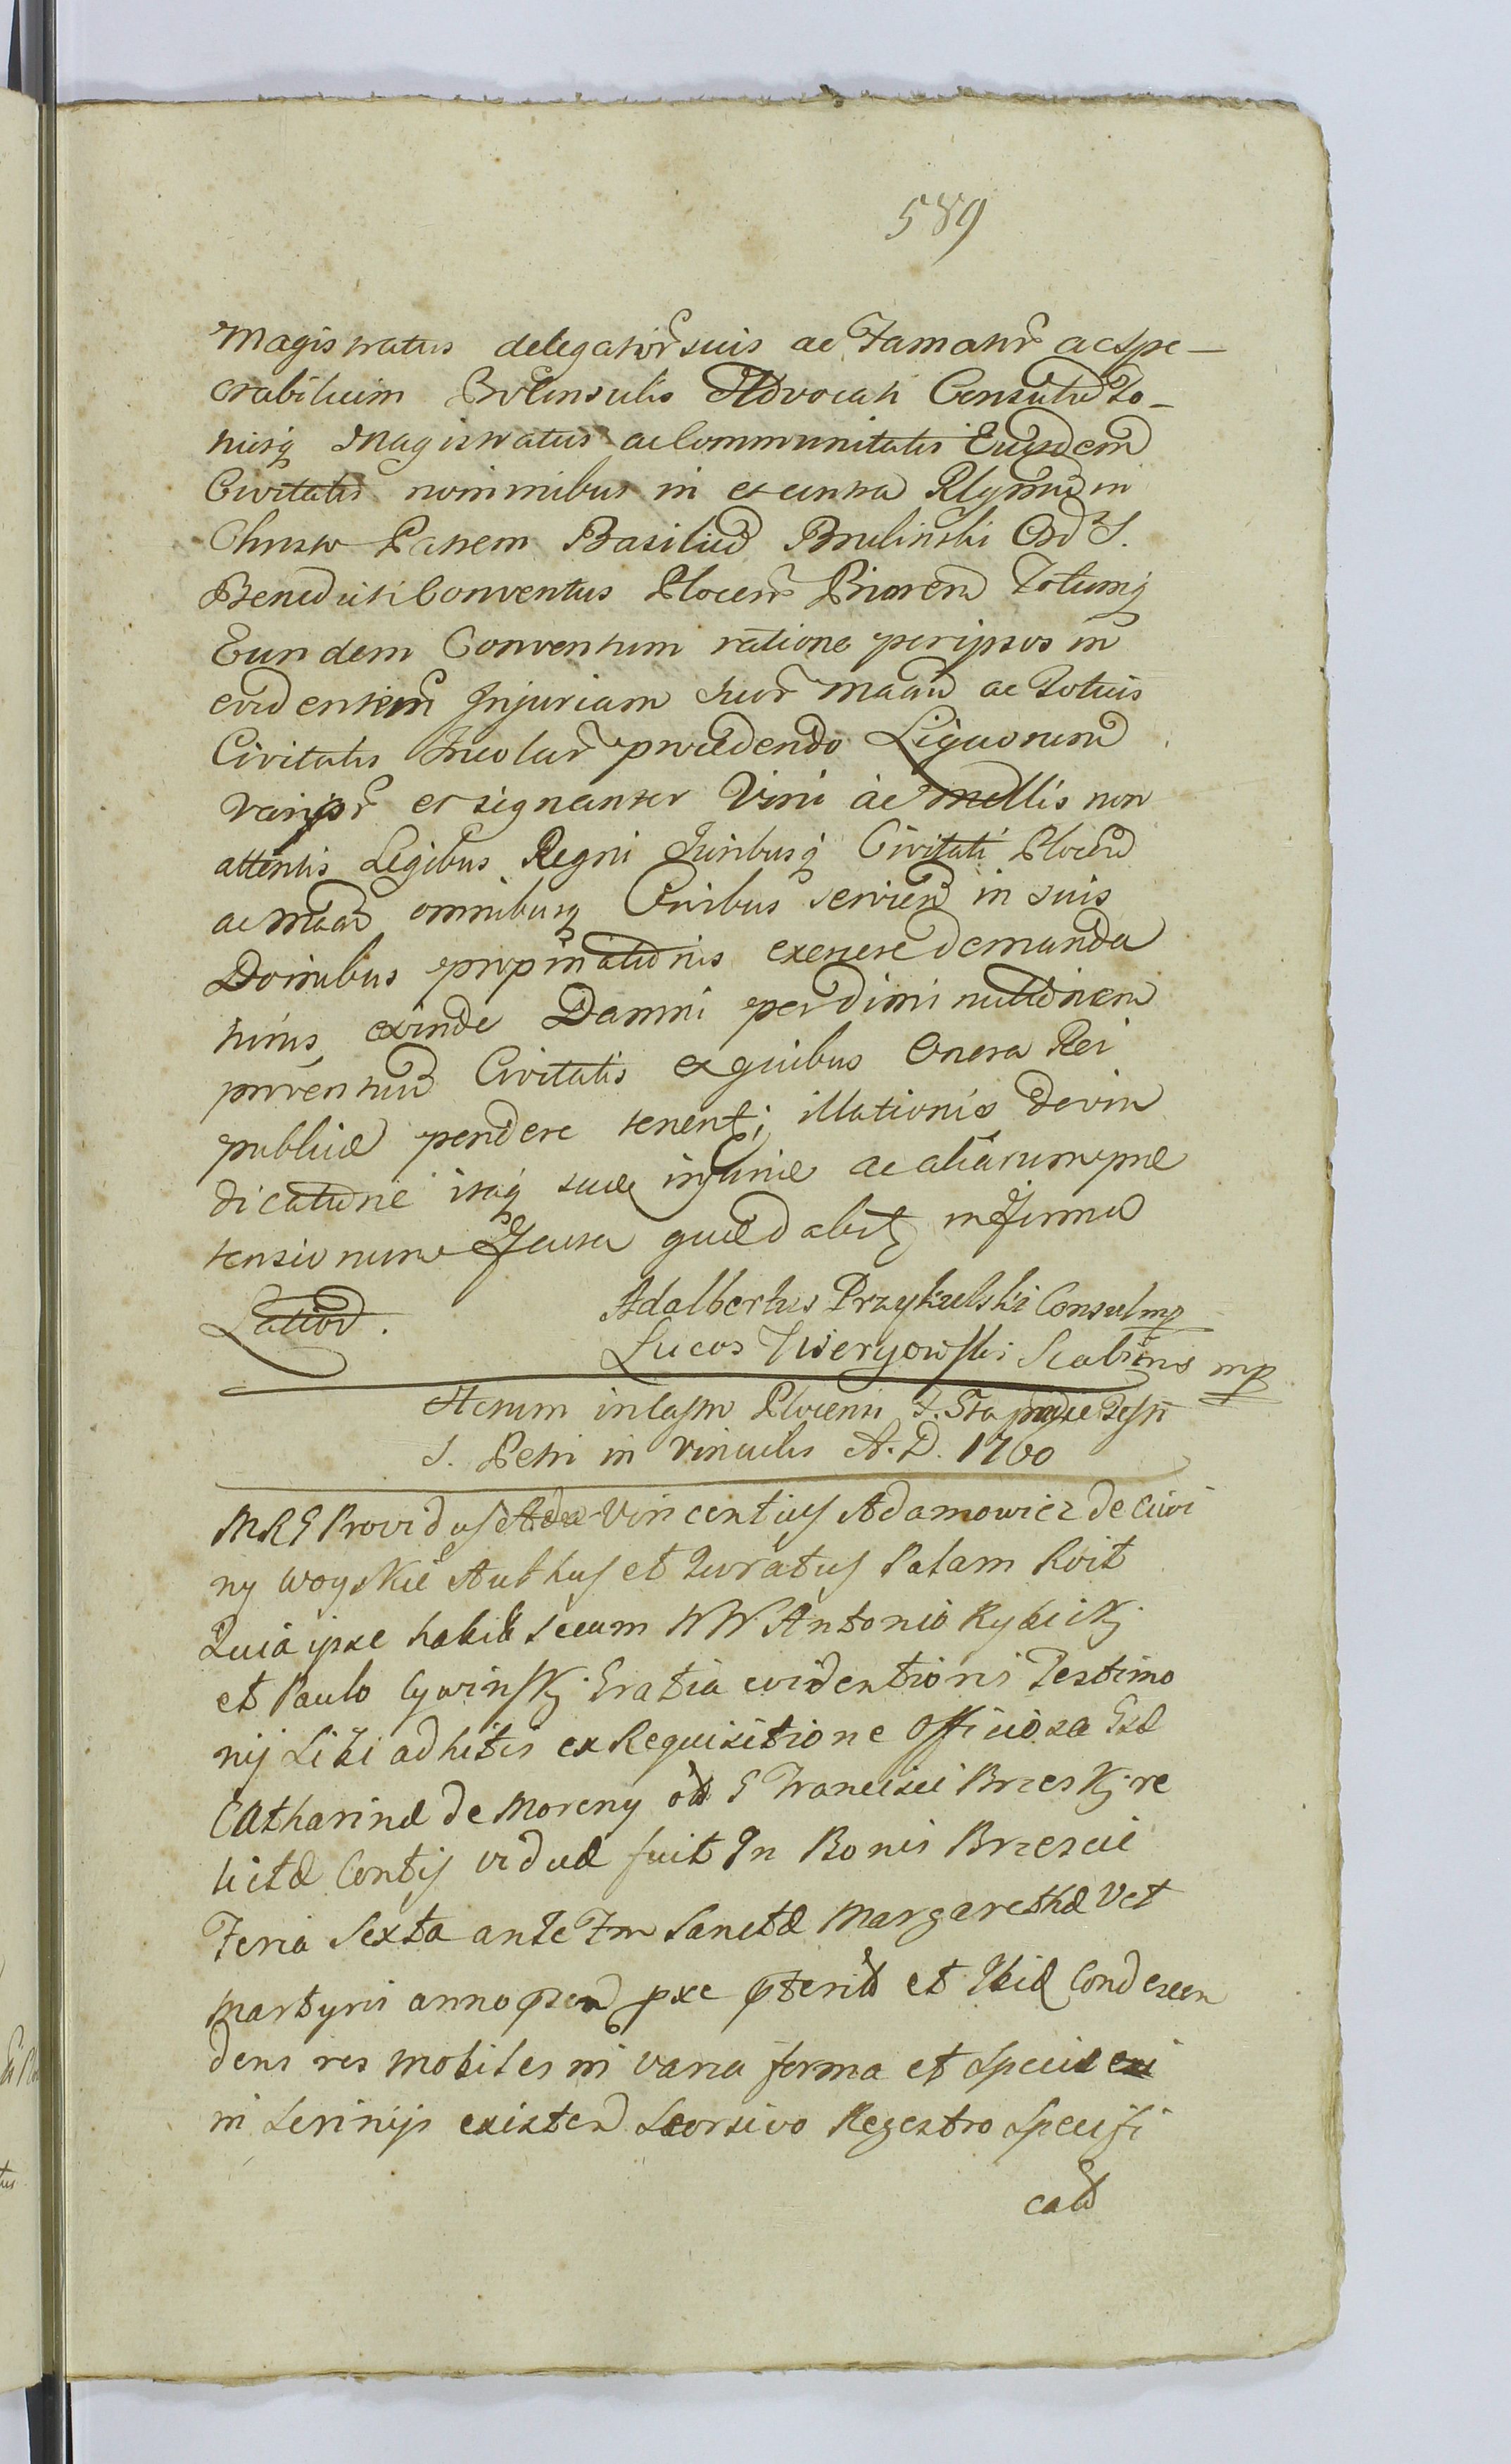 589
Magistratus delegator suis ac Famator ac spe-
ctabilium Proconsulis Advocati Consulu to-
tiusq Magistratus ac Communitatis Eiusdem
Civitatis nominibus in et contra Rlgnmu in
Christo Patrem Basiliu Brulinski Ord S.
Benedicti Conventus Plocen Priorem Totumq
Eundem Conventum ratione per ipsos in
evidentem Injuriam suor maau ac totius
Civitatis Incolar procedendo Liquorum
varior et signanter Vini ac mellis non
attentis Legibus Regni Juribusq Civitati Plocen
ac maau omnibusq Civibus servien in suis
Domibus propinationis exercere demanda
tinis, exinde Damni per diminutionem
proventuu Civitatis ex quibus Onera Rei
publicæ pendere tenentj illationis devin
dicatione itaq suæ injuriæ ac aliarum præ
tensionum Jctura quæ dabitj in Termio
Latiod.
Adalbertus Przykulski Consul mp
Lucas Twergowski Scabinus mp
Actum in Castro Plocensi F. 6ta pridie Festi
S. Petri in Vinculis A. D. 1760
MRG Providus Vincentius Adamowicz de Civi
ny Woyskie Authus et Juratus Palam Rvit
Quia ipse habit secum NN Antonio Rybicki
et Paulo Cywinski Gratia evidentioris Testimo
nij Sibi adhitis ex Requisitione Officiosa Gsd
Catharinæ de Moreny od G Francisci Brzeski re
lictæ Contis viduæ fuit In Bonis Brzescie
Feria Sexta ante Fm Sanctæ Margarethæ Vet
Martyris anno psen pxe pterit et Ibid Condescen
dens res mobiles in varia forma et specie
in Scrinijs existen Seorsivo Regestro Specifi
catd